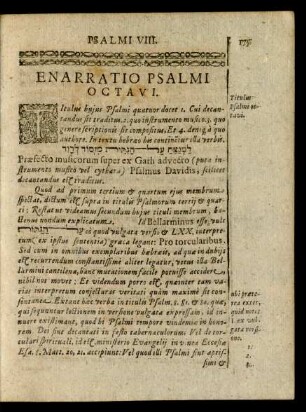 PSALMI VIII.
175
ENARRATIO PSALMI
OCTAVI.
TItulus hujus Psalmi quatuor docet 1. Cui decan-
tandus sit traditus. 2. quo instrumento musico. 3. quo
genere scriptionis sit compositus. Et 4. deniq́; à quo
authore. In textu hebræo hæc continētur ita verba.
לַמְנַצֵּחַ עַל־הַגִּתִּית מִזְמוֹר לְדָוִד
Præfecto musicorum super ex Gath advecto (puta in-
strumento musico vel cythara) Psalmus Davidis, scilicet
decantandus est traditus.
Quod ad primum tertium & quartum ejus membrum
spectat, dictum est supra in titulis Psalmorum tertij & quar-
ti; Restat ut videamus secundum hujus tituli membrum,
nondum explicatum. Bellarminus esse, vult
עַל־הַגִּתִּית id quod vulgata versio & LXX. interpre-
tum, ex ipsius sententia, græca legant: Pro torcularibus.
Sed cum in omnibus exemplaribus hebraicis, ad quæ in dubijs
est recurrendum constantissimè aliter legatur, vetus ista Bel-
larmini cantilena, hanc mutationem facile potuisse accidere,
nihil nos movet; Et videndum potius est, quænam tam va-
rias interpretum conjecturas veritati quàm maximè sit con-
sentanea. Extant hæc verba in titulis Psalm. 8. 81. & 84. quæ,
qui sequuntur lectionem in versione vulgata expressam, id in-
nuere existimant, quod hi Psalmi tempore vindemiæ in hono-
rem Dei sint decantati in festo tabernaculorum: Vel de tor-
cularibus spiritualibus, id est, ministerio Evangelij in vinea Ecclesiæ
Esa. 5. Matt. 20. 21. accipiunt: Vel quod illi Psalmi sint aptis-
simi &
Titulus
Psalmi oc-
tavi.
1.
2.
3.